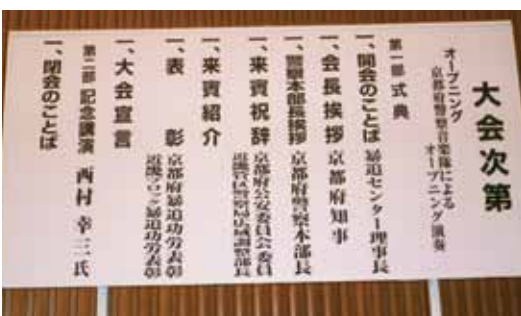 大会次第
オープニング
京都府警察音楽隊による
オープニング演奏
第一部 式典
一、開会のことば 暴追センター理事長
一、会長挨拶 京都府知事
一、警察本部長挨拶 京都府警察本部長
一、来賓祝辞 京都府公安委員会委員
近畿管区警察局広域調整部長
一、来賓紹介
一、表彰 京都府暴追功労表彰
近畿ブロック暴追功労表彰
一、大会宣言
第二部 記念講演 西村幸三氏
一、閉会のことば